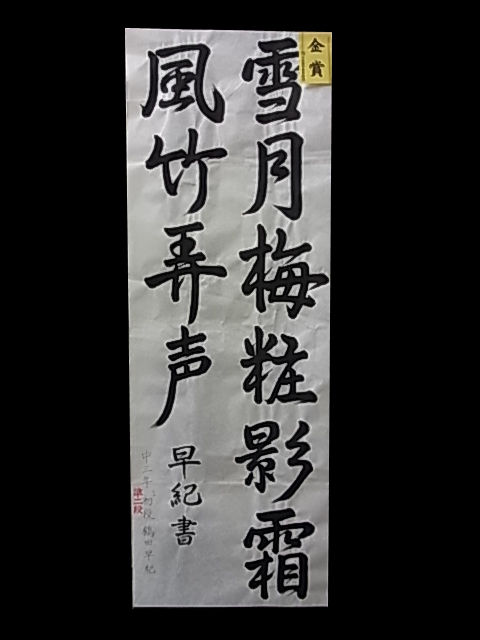 金賞
雪月梅粧影霜
風竹弄声
早紀書
中二年 初段 鶴田早紀
準二段